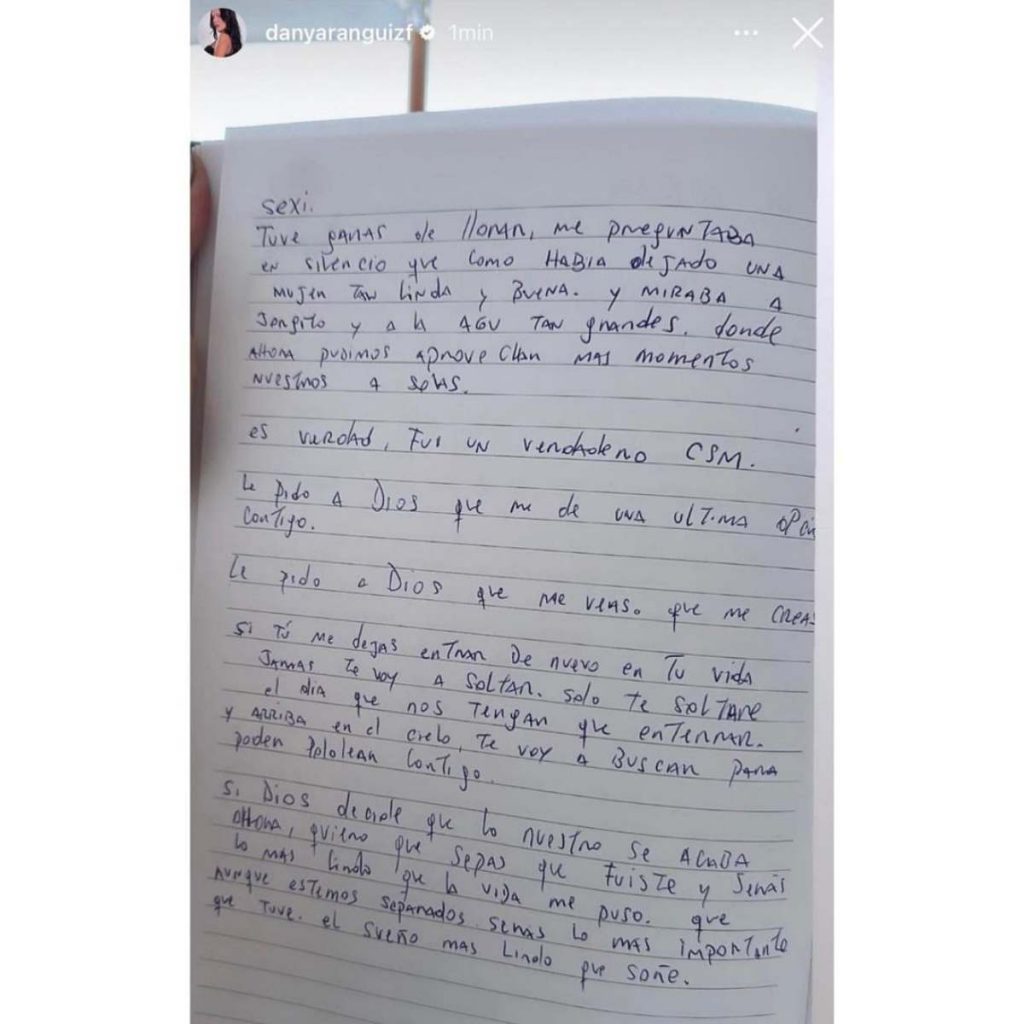 danyaranguizf 1min
sexi.
Tuve ganas de llorar, me preguntaba
en silencio que como habia dejado una
mujer tan linda y buena. y miraba a
Jorgito y a la Agu tan grandes. donde
ahora pudimos aprovechar mas momentos
nuestros a solas.
es verdad, fui un verdadero CSM.
Le pido a Dios que me de una ultima opcin
contigo.
Le pido a Dios que me veas. que me creas
si tú me dejas entrar de nuevo en tu vida
jamas te voy a soltar. solo te soltare
el dia que nos tengan que enterrar.
y arriba en el cielo, te voy a buscar para
poder pololear contigo.
si Dios decide que lo nuestro se acaba
ahora, quiero que sepas que fuiste y serás
lo mas lindo que la vida me puso. que
aunque estemos separados seras lo mas importante
que tuve. el sueño mas lindo que soñe.